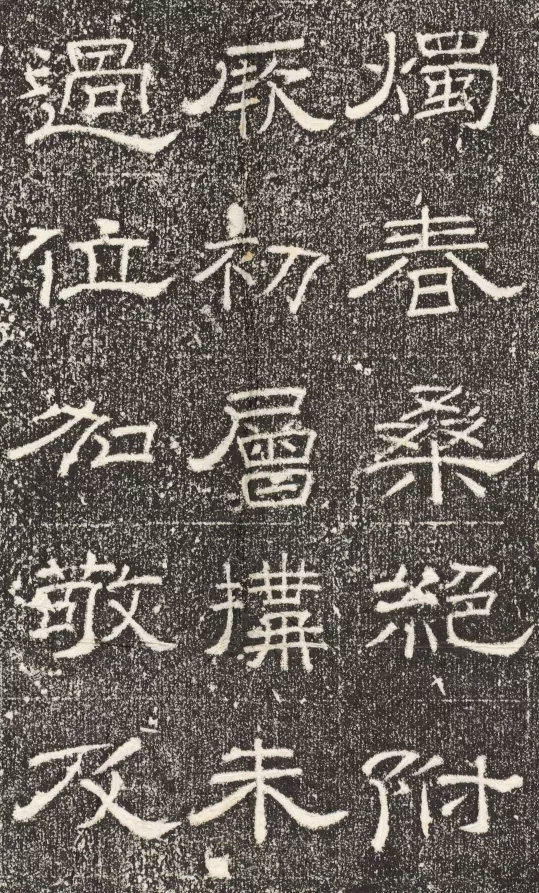 燭春桑絕附
厥初層構未
過位加敬及